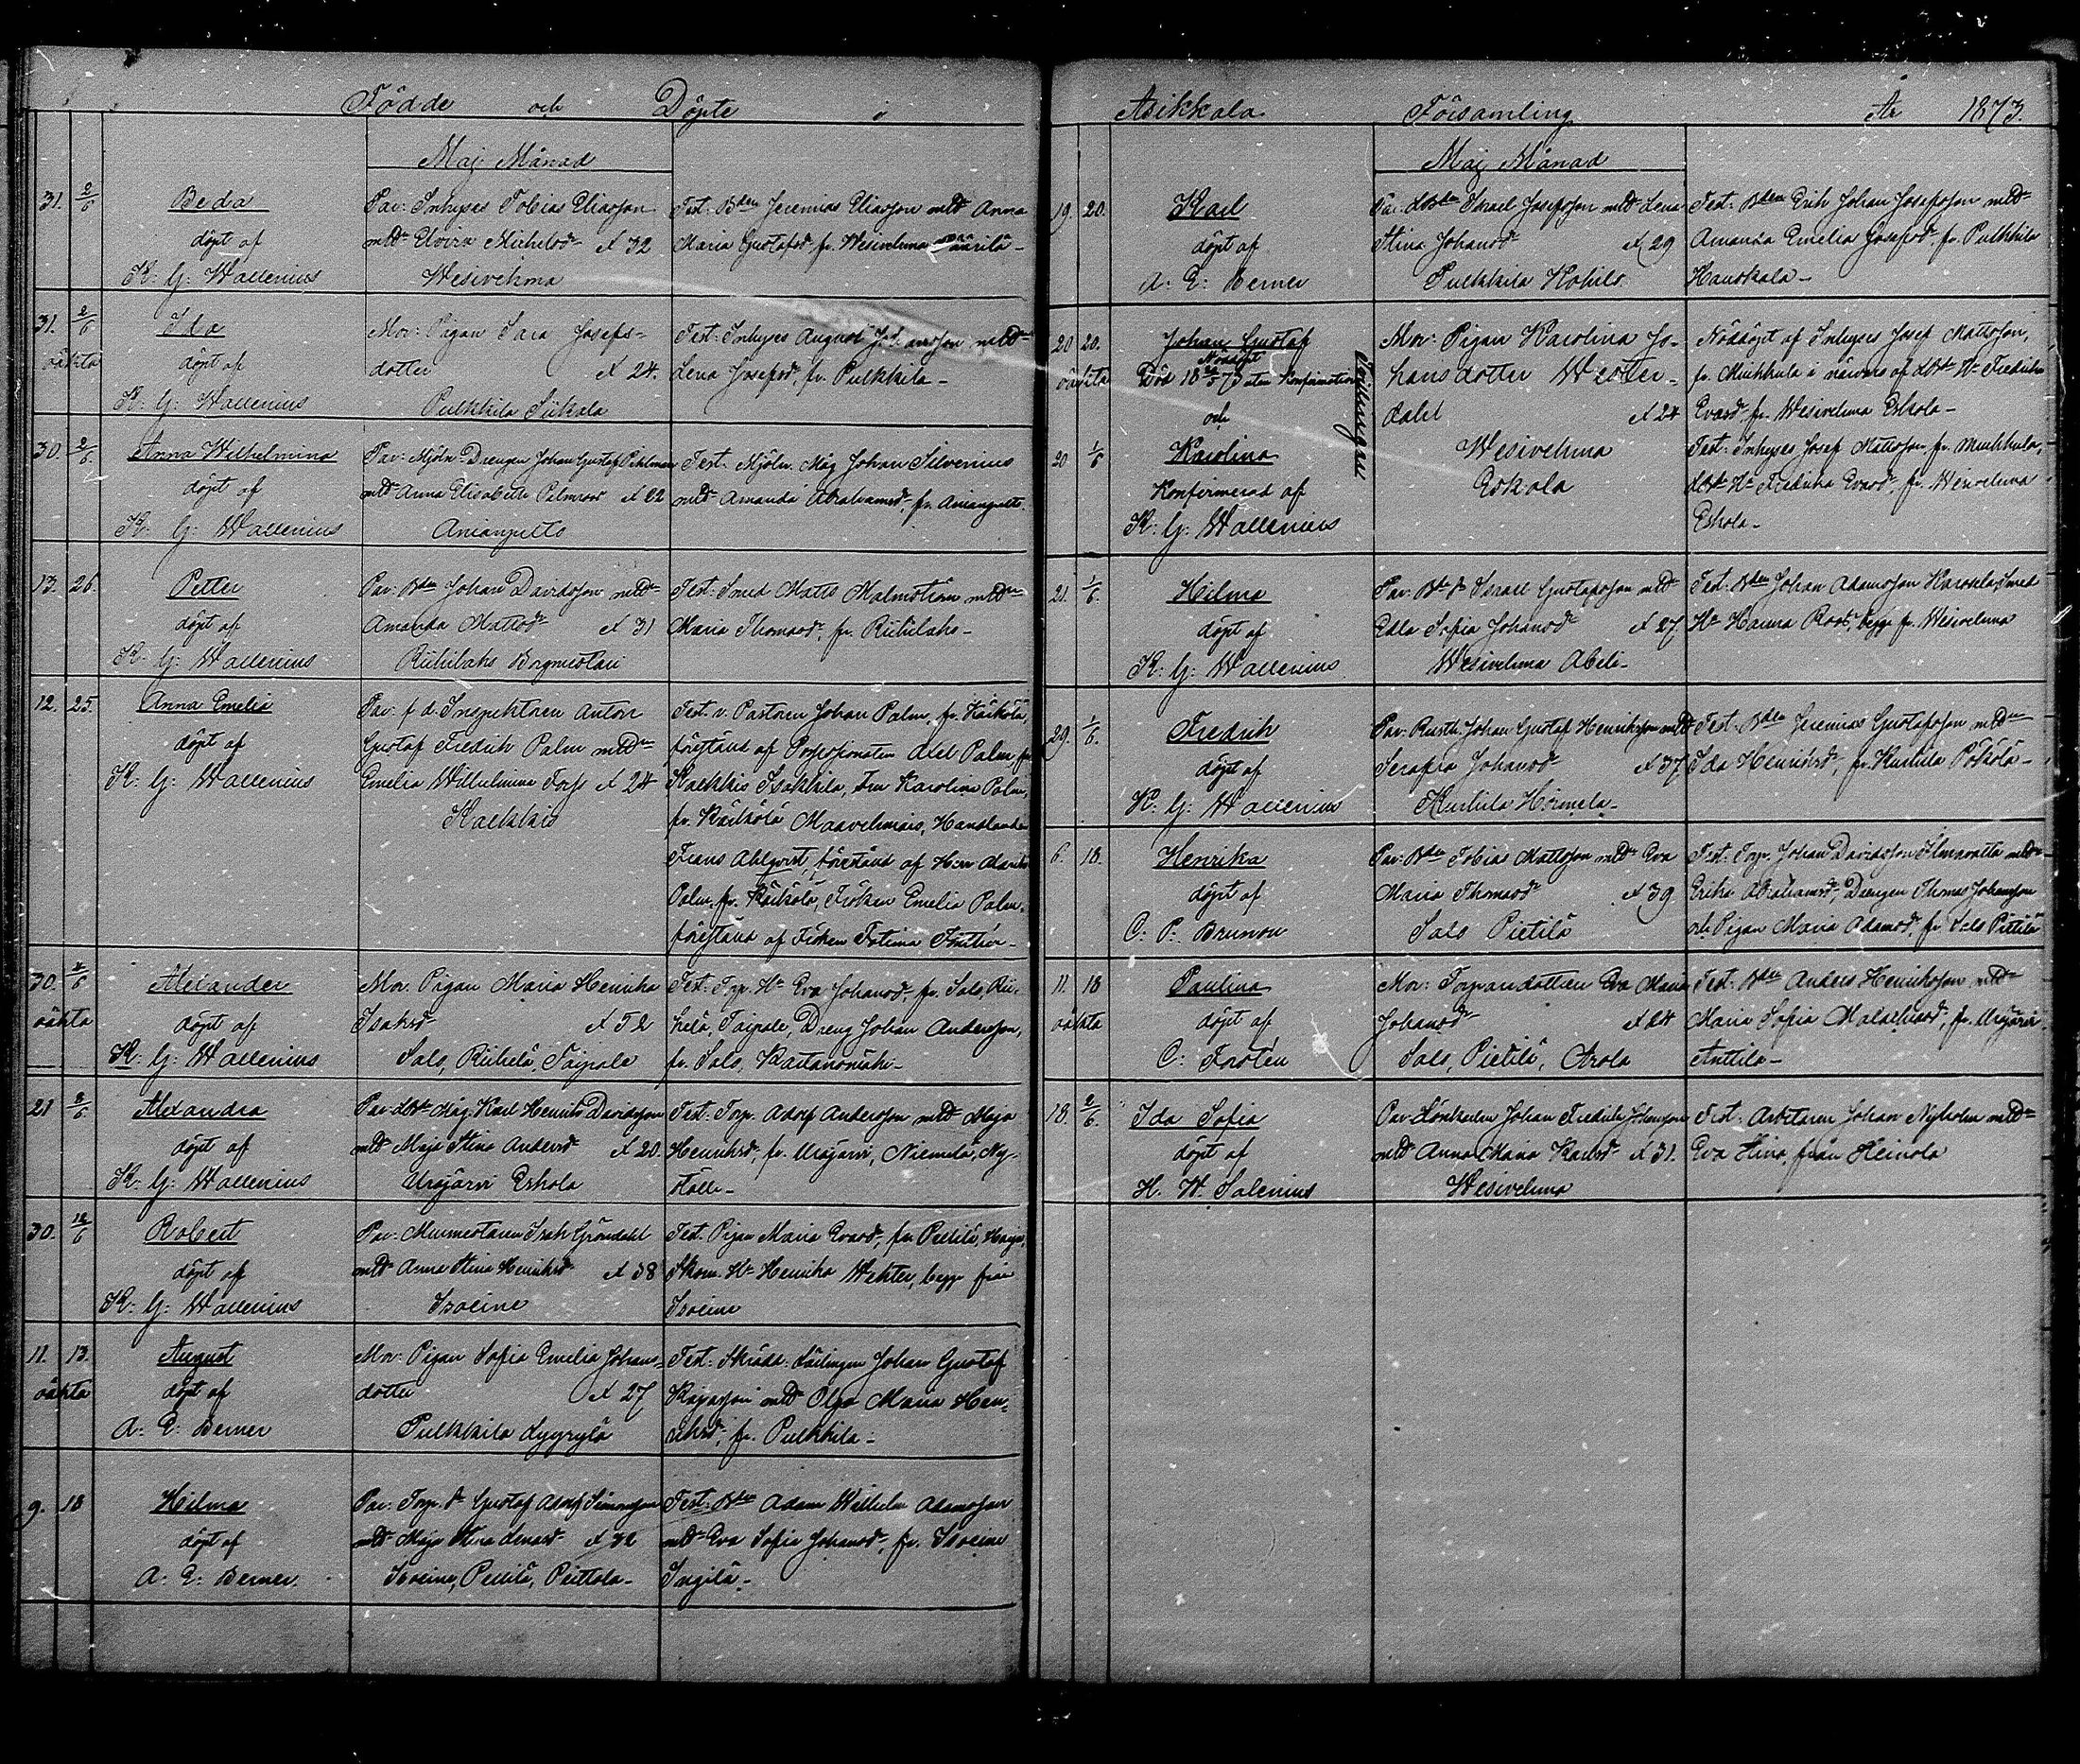 Födde och Döpte i
Maj Månad
31. 2/6 Beda
döpt af
K: G: Wallenius
Par: Inhyses Tobias Eliasson
mldr Elvira Michelsdr Å 32
Wesivehma
Test: Bden Jeremias Eliasson mldr Anna
Maria Gustafsdr, fr. Wesivehma
31. 2/6 Ida
oäkta döpt af
K: G: Wallenius
Mor: Pigan Sara Josefs-
dotter Å 24.
Pulkkila Siikala
Test: Inhyses August Johansson mldr
Lena Josefsdr, fr. Pulkkila-
30. 2/6 Anna Wilhelmina
döpt af
K: G: Wallenius
Par: Mjöln: Drengen Johan Gustaf Pihlman
mldr Anna Elisabeth Palmroos Å 22
Anianpelto
Test: Mjöln. Måg Johan Silvenius
mldr Amanda Abrahamsdr, fr. Anianpelto.
13. 26. Petter
döpt af
K: G: Wallenius
Par: Bden Johan Davidsson mldr
Amanda Mattsdr Å 31
Riihilaks Borgmestari
Test: Smed Matts Malmström mldr
Maria Thomasdr, fr. Riihilaks-
12. 25. Anna Emelia
döpt af
K: G: Wallenius
Par: f d. Inspektoren Anton
Gustaf Fredrik Palm mldr
Emelia Wilhelmina Forss Å 24
Kalkkis
Test: v. Pastoren Johan Palm, fr. Kärkölä,
företäud af Possessionaten Axel Palm fr
Kalkkis Isakkila, Fru Karolina Palm,
fr. Kärkölä Maavehmais, Handlanden
Frans Ahlqvist, företäud af Herr
Palm, fr. Kärkölä, Fröken Emelia Palm,
företäud af Fröken Fatima
30. 4/6 Alexander
oäkta döpt af
K: G: Wallenius
Mor: Pigan Maria Henrika
Isaksdr Å 52
Sals, Riihelä, Taipale
Test: Torp. Hu Eva Johansdr, fr. Sals, Rii-
helä, Taipale, Dreng Johan Andersson,
fr. Sals, Kaitanomäki-
21 8/6 Alexandra
döpt af
K: G: Wallenius
Par: Måg Karl Henrik Davidsson
mldr Maja Stina Andersdr Å 20.
Urajärvi Eskola
Test: Torp. Adolf Andersson mldr Maja
Henriksdr, fr. Urajärvi, Niemelä, Ny-
ställe-
30. 12/6 Robert
döpt af
K: G: Wallenius
Par: Murmestaren Isak Gröndahl
mldr Anna Stina Henriksdr Å 38
Isoeine
Test: Pigan Maria Evasdr, fr. Pietilä,
Skom. Hu Henrika Wehter, begge från
Isoeine
11. 13. August
oäkta döpt af
A: E: Berner
Mor: Pigan Sofia Emelia Johans-
dotter Å 27
Pulkkila Lyyrylä
Test: Skrädd: Lärlingen Johan Gustaf
mldr Olga Maria Hen-
riksdr, fr. Pulkkila-
9. 18 Hilma
döpt af
A: E: Berner.
Par: Torp. Gustaf Adolf Simonsson
mldr Maja Stina Å 32
Isoeine, Pietilä, Peittola-
Test: Bden Adam Wilhelm Adamsson
mldr Eva Sofia Johansdr, fr. Isoeine
Ingilä.-
Asikkala Församling År 1873.
Maj Månad
19. 20. Karl
döpt af
A: E: Berner
Par: Israel Josefsson mldr Lena
Stina Johansdr Å 29
Pulkkila Hohils
Test: Bden Erik Johan Josefsson mldr
Amanda Emelia Josefsdr, fr. Pulkkila
Hauskala-
20 20. Johan Gustaf
Nöddöpt
oäkta Död 18 73 utan Konfirmation
och
20 1/6 Karolina
Konfirmerad af
K: G: Wallenius
Tvillingar
Mor: Pigan Karolina Jo-
hansdotter Wester-
dahl Å 24
Wesivehma
Eskola
Nöddöpt af Inhyses Josef Mattsson,
fr. Muikkula i närvaro af Hu Fredrika
Evasdr fr. Wesivehma Eskola-
Test: Inhyses Josef Mattsson fr. Muikkula,
Hu Fredrika Evasdr, fr. Wesivehma
Eskola-
21. 1/6. Hilma
döpt af
K: G: Wallenius
Par: Israel Gustafsson mldr
Edla Sofia Johansdr Å 27.
Wesivehma Abeli-
Test: Bden Johan Adamsson Smed
Hu Hanna Roos, begge fr. Wesivehma
29. 1/6. Fredrik
döpt af
K: G: Wallenius
Par: Rusth. Johan Gustaf Henriksson mldr
Serafia Johansdr Å 37
Kurhila Hörmelä-
Test: Bden Jeremias Gustafsson mldr
Ida Henriksdr, fr. Kurhila
6. 18. Henrika
döpt af
C: P: Brunou
Par: Bden Tobias Mattsson mldr Eva
Maria Thomasdr Å 39
Sals Pietilä
Test: Torp. Johan Davidsson mldr
Erika Abrahamsdr, Drengen Thomas Johansson
och Pigan Maria Adamsdr, fr. Sals Pietilä
11. 18 Paulina
oäkta döpt af
C: Forstén
Mor: Torparedottern Eva Maria
Johansdr Å 24
Sals, Pietilä, Arola
Test: Bden Anders Henriksson mldr
Maria Sofia Malakiasdr, fr. Urajärvi
Anttila-
18. 2/6. Ida Sofia
döpt af
H. W. Salenius
Par: Johan Fredrik Johansson
mldr Anna Maria Karlsdr Å 31.
Wesivehma
Test: Arbetaren Johan Nyholm mldr
Eva Stina, från Heinola